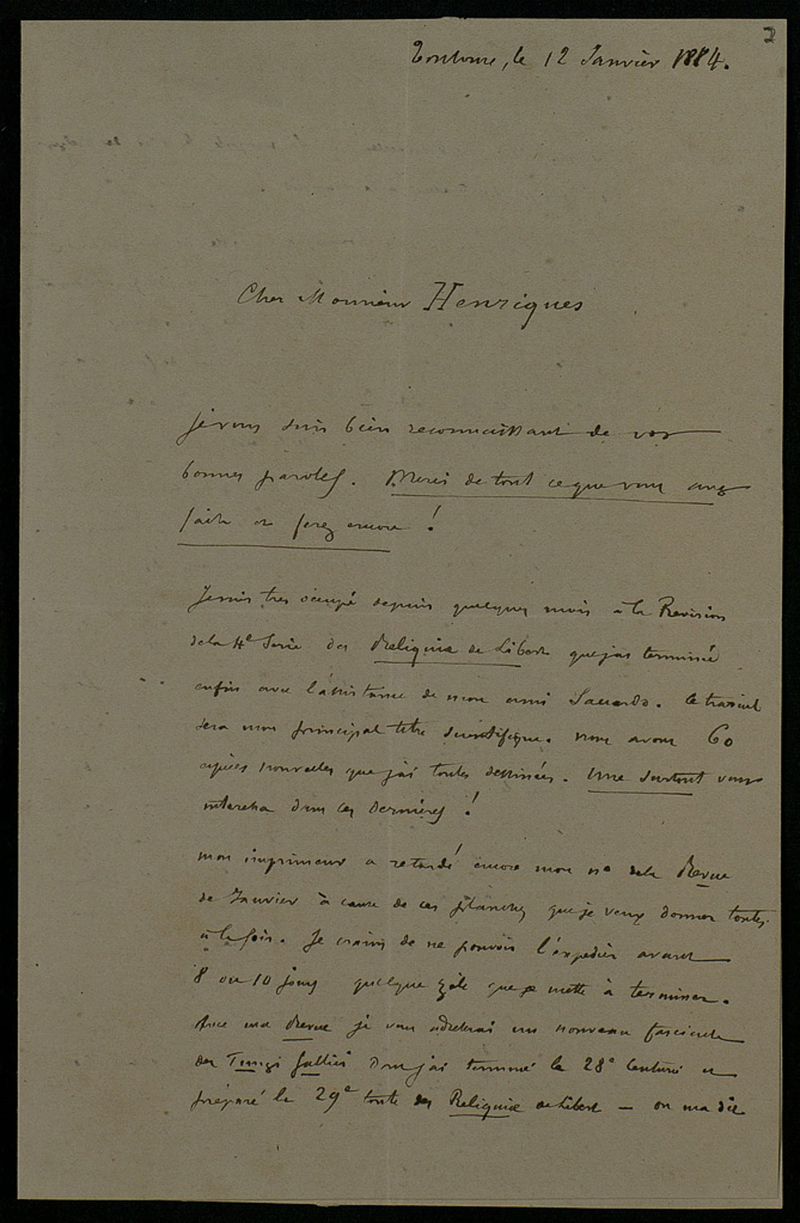 2
Toulouse, le 12 Janvier 1884.
Cher Monsieur Henriques
Je vous suis bien reconnaissant de vos
bonnes paroles. Merci de tout ce que vous avez
fait et ferez encore !
Je suis tres occupé depuis quelques mois à la Revision
de la 4e Serie des Reliquiae de Libert que j'ai terminé
enfin avec l'assistance de mon ami Saccardo. Ce travail
sera mon principal titre scientifique. nous avons 60
espèces nouvelles que j'ai toutes dessinées. Une surtout vous
interessera dans ces dernières !
mon imprimeur a retardé encore mon no de la Revue
de Janvier à cause de ces planches que je veux donner toutes
à la fois. Je crains de ne pouvoir l'expédier avant
8 ou 10 jours quelque zèle que je mette à terminer.
Avec ma Revue je vous adresserai un nouveau fascicule
des Fungi Gallici dont j'ai terminé la 28e Centurie et
préparé la 29e toute des Reliquiae de Libert — on m'a dit